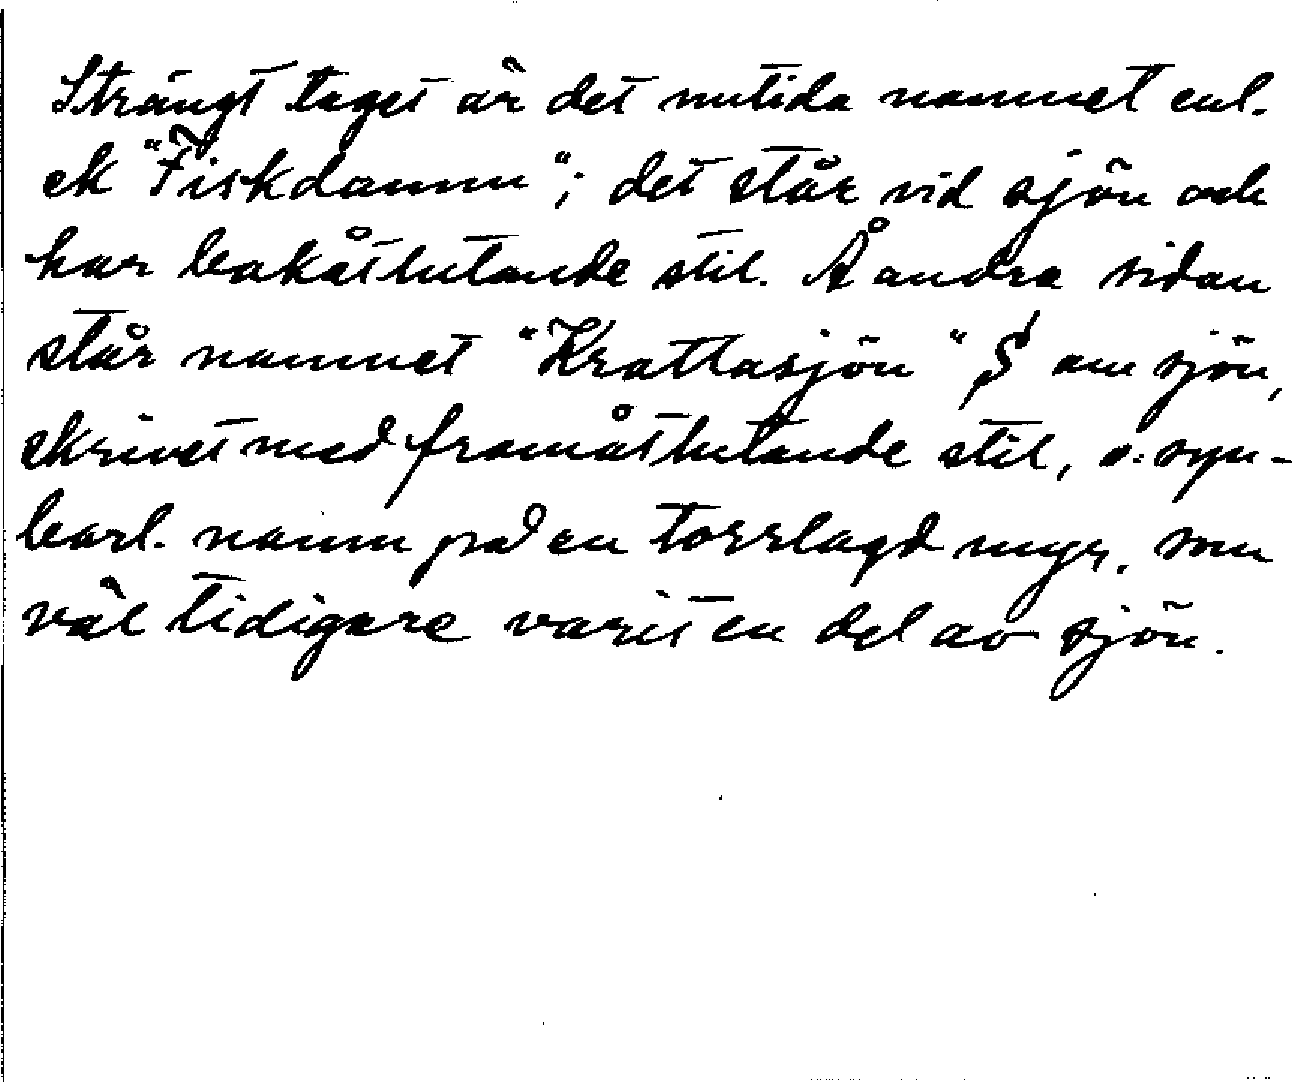 Strängt taget är det nutida namnet enl.
ek "Fiskdamm"; det står vid sjön och
har bakåtlutande stil. Å andra sidan
står namnet "Krattasjön" S om sjön,
skrivet med framåtlutande stil, o: syn-
barl. namn på en torrlagd myr, som
väl tidigare varit en del av sjön.